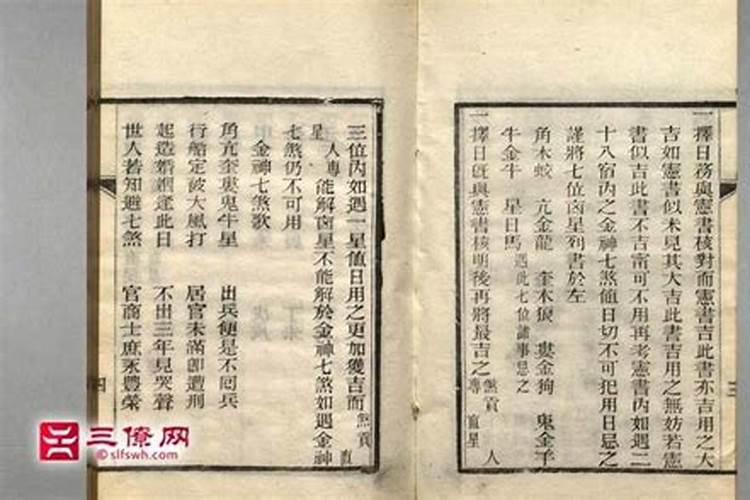 一擇日務與憲書核對而憲書吉此書亦吉用之大
吉如憲書似未見其大吉此書吉用之無妨若憲
書似吉此書不吉甯可不用再考憲書內如遇二
十八宿內之金神七煞値日切不可犯用日忌之
謹將七位凶星列書於左
角木蛟 亢金龍 奎木狼 婁金狗 鬼金羊
牛金牛 星日馬 遇此七位諸事忌之
一擇日旣與憲書核明後再將最吉之煞貢 人
專 直星
三
三位內如遇一星値日用之更加獲吉而煞貢 直
星 人專能解凶星不能解於金神七煞如遇金神
七煞仍不可用
金神七煞歌
角亢奎婁鬼牛星 出兵便是不囘兵
行船定被大風打 居官未滿卽遭刑
起造婚姻逢此日 不出三年見哭聲
世人若知避七煞 官商士庶永豐榮
四
三僚网
©slfswh.com